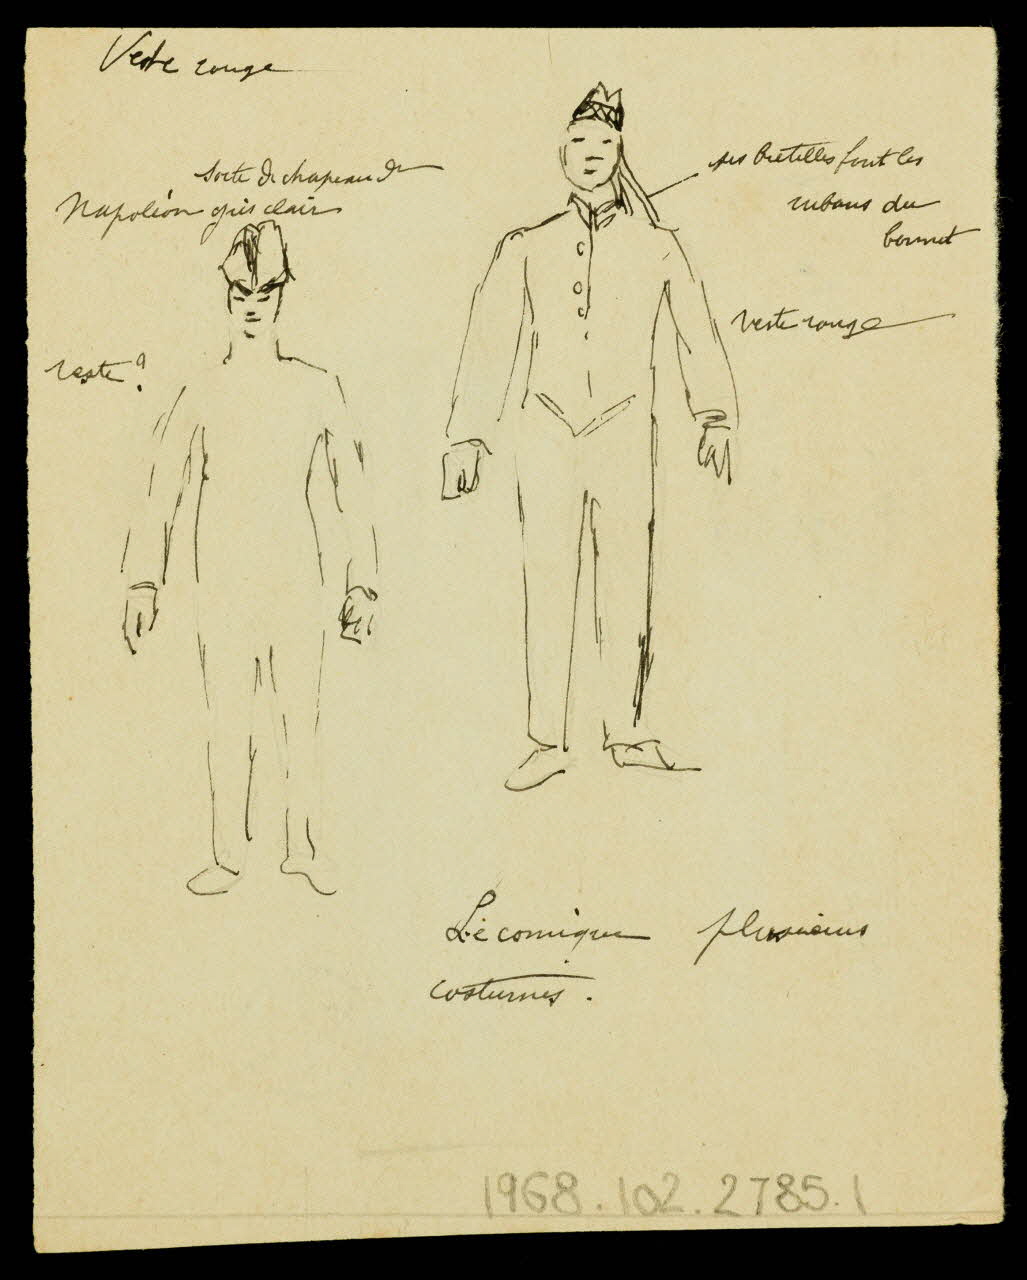 Veste rouge
sorte de chapeau de
Napoléon gris clair
veste?
ses bretelles font les
rubans du
bonnet
veste rouge
Le comique plusieurs
costumes.
1968.102.2785.1